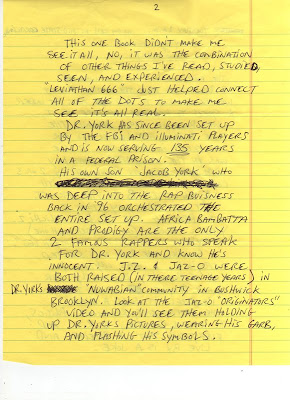 2
THIS ONE BOOK DIDNT MAKE ME
SEE IT ALL, NO, IT WAS THE CONBINATION
OF OTHER THINGS I'VE READ, STUDIED,
SEEN, AND EXPERIENCED.
"LEVIATHAN 666" JUST HELPED CONNECT
ALL OF THE DOTS TO MAKE ME
SEE IT'S ALL REAL.
DR. YORK HAS SINCE BEEN SET UP
BY THE FBI AND ILLUMINATI PLAYERS
AND IS NOW SERVING 135 YEARS
IN A FEDERAL PRISON.
HIS OWN SON "JACOB YORK" WHO
WAS DEEP INTO THE RAP BUISNESS
BACK IN 96 ORCHESTRATED THE
ENTIRE SET UP. AFRICA BAMBATTA
AND PRODIGY ARE THE ONLY
2 FAMOUS RAPPERS WHO SPEAK
FOR DR. YORK AND KNOW HE'S
INNOCENT. J.Z. & JAZ-O WERE
BOTH RAISED (IN THERE TEENAGE YEARS) IN
DR. YORKS "NUWABIAN" COMMUNITY IN BUSHWICK
BROOKLYN. LOOK AT THE JAZ-O "ORIGINATORS"
VIDEO AND YOU'LL SEE THEM HOLDING
UP DR. YORKS PICTURES, WEARING HIS GARB,
AND FLASHING HIS SYMBOLS.